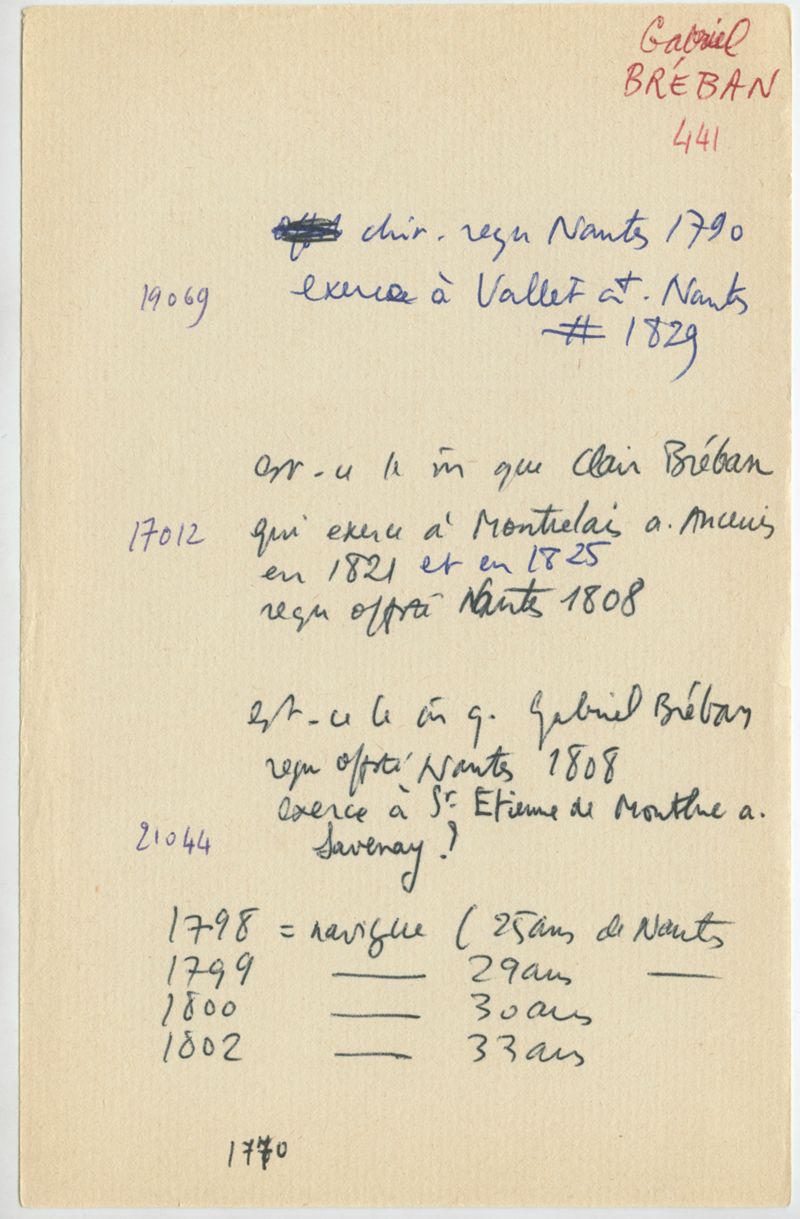 Gabriel
BRÉBAN
441
chir. reçu Nantes 1790
19069 exerce à Vallet at. Nantes
# 1829
est-ce le m̄ que Clair Bréban
17012 qui exerce à Montrelais a. Ancenis
en 1821 et en 1825
reçu offté Nantes 1808
est-ce le m̄ q. Gabriel Bréban
reçu offté Nantes 1808
exerce à St. Etienne de Montluc a.
21044 Savenay ?
1798 = navigue ( 25 ans de Nantes
1799 — 29 ans —
1800 — 30 ans
1802 — 33 ans
1770